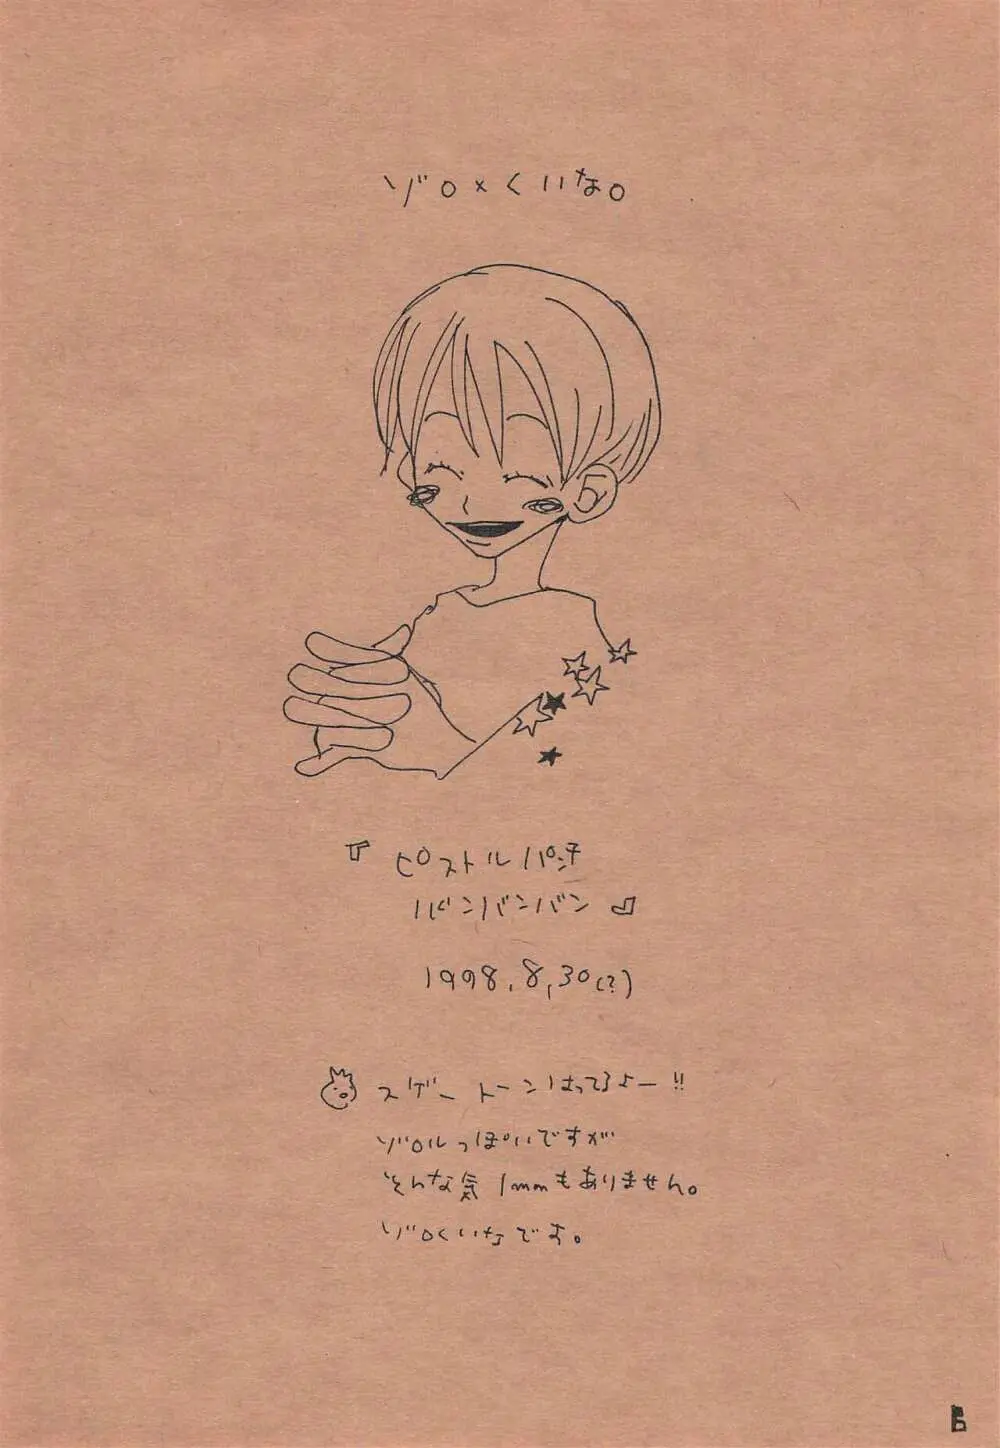 ゾロ×くいな。
『ピストルパンチ
バンバンバン』
1998.8.30(?)
スゲートーンはってるよー!!
ゾロルっぽいですが
そんな気1mmもありません。
ゾロくいなです。
6